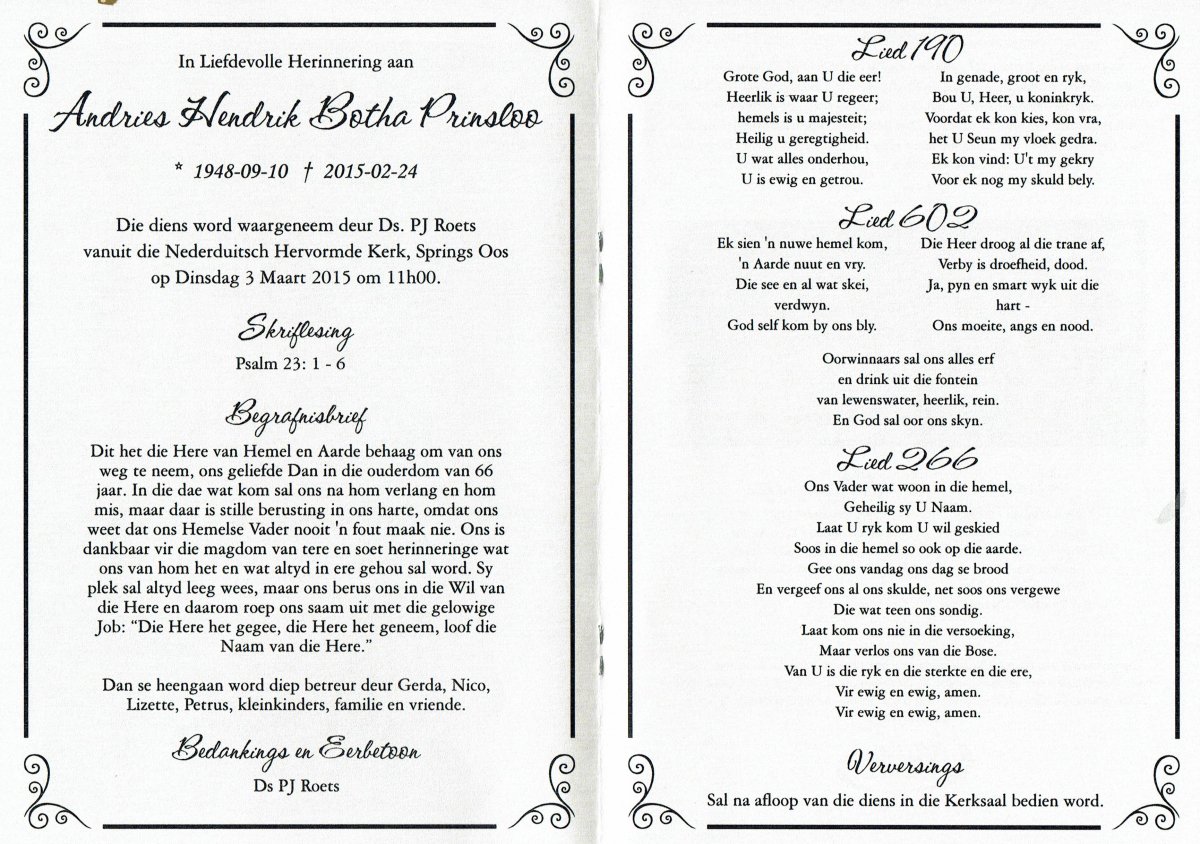 In Liefdevolle Herinnering aan
Andries Hendrik Botha Prinsloo
* 1948-09-10 † 2015-02-24
Die diens word waargeneem deur Ds. PJ Roets
vanuit die Nederduitsch Hervormde Kerk, Springs Oos
op Dinsdag 3 Maart 2015 om 11h00.
Skriflesing
Psalm 23: 1 - 6
Begrafnisbrief
Dit het die Here van Hemel en Aarde behaag om van ons
weg te neem, ons geliefde Dan in die ouderdom van 66
jaar. In die dae wat kom sal ons na hom verlang en hom
mis, maar daar is stille berusting in ons harte, omdat ons
weet dat ons Hemelse Vader nooit 'n fout maak nie. Ons is
dankbaar vir die magdom van tere en soet herinneringe wat
ons van hom het en wat altyd in ere gehou sal word. Sy
plek sal altyd leeg wees, maar ons berus ons in die Wil van
die Here en daarom roep ons saam uit met die gelowige
Job: “Die Here het gegee, die Here het geneem, loof die
Naam van die Here.”
Dan se heengaan word diep betreur deur Gerda, Nico,
Lizette, Petrus, kleinkinders, familie en vriende.
Bedankings en Eerbetoon
Ds PJ Roets
Lied 190
Grote God, aan U die eer!
Heerlik is waar U regeer;
hemels is u majesteit;
Heilig u geregtigheid.
U wat alles onderhou,
U is ewig en getrou.
In genade, groot en ryk,
Bou U, Heer, u koninkryk.
Voordat ek kon kies, kon vra,
het U Seun my vloek gedra.
Ek kon vind: U't my gekry
Voor ek nog my skuld bely.
Lied 602
Ek sien 'n nuwe hemel kom,
'n Aarde nuut en vry.
Die see en al wat skei,
verdwyn.
God self kom by ons bly.
Die Heer droog al die trane af,
Verby is droefheid, dood.
Ja, pyn en smart wyk uit die
hart -
Ons moeite, angs en nood.
Oorwinnaars sal ons alles erf
en drink uit die fontein
van lewenswater, heerlik, rein.
En God sal oor ons skyn.
Lied 266
Ons Vader wat woon in die hemel,
Geheilig sy U Naam.
Laat U ryk kom U wil geskied
Soos in die hemel so ook op die aarde.
Gee ons vandag ons dag se brood
En vergeef ons al ons skulde, net soos ons vergewe
Die wat teen ons sondig.
Laat kom ons nie in die versoeking,
Maar verlos ons van die Bose.
Van U is die ryk en die sterkte en die ere,
Vir ewig en ewig, amen.
Vir ewig en ewig, amen.
Verversings
Sal na afloop van die diens in die Kerksaal bedien word.